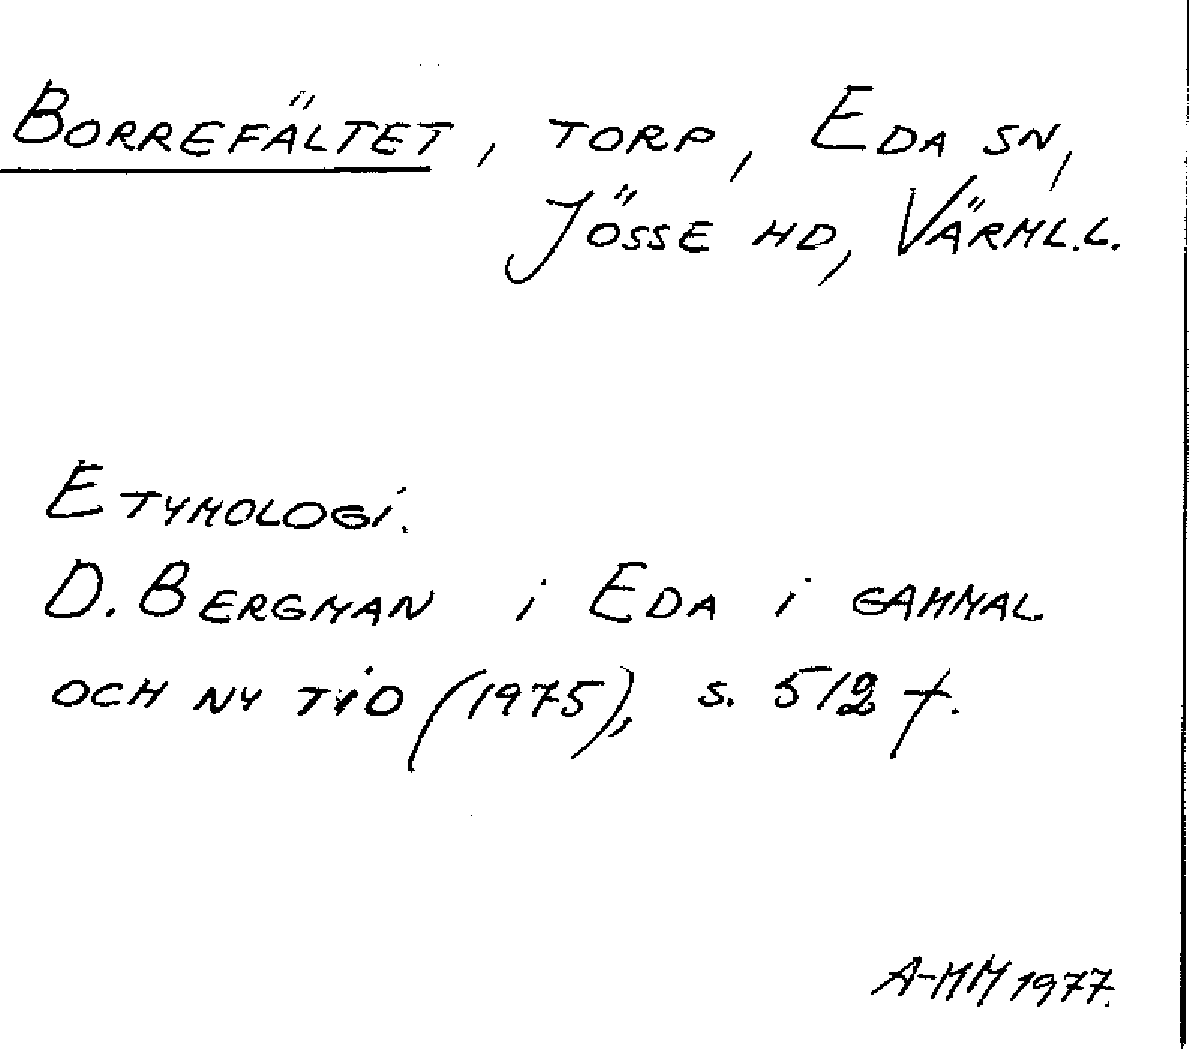 BORREFÄLTET, TORP, EDA SN,
JÖSSE HD, VÄRML.L.
ETYMOLOGI.
D. BERGMAN i EDA i GAMMAL
OCH NY TID (1975), S. 512 f.
A-MM 1977.